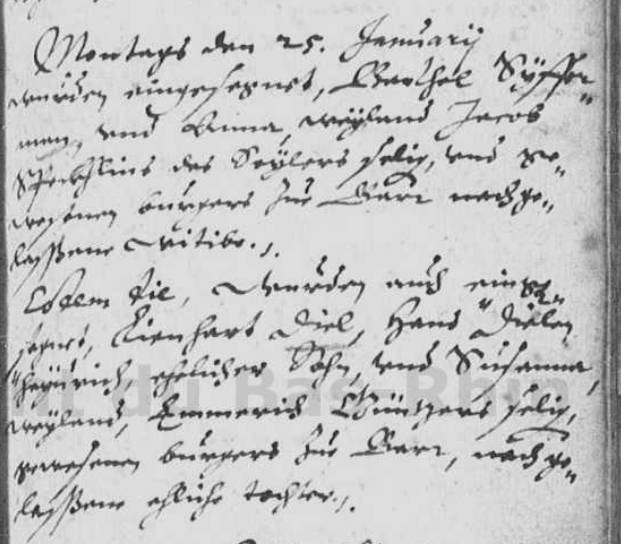 Montags den 25. Januarij
wurden eingesegnet, Barthel Syffer„
man, und Anna, weyland Jacob
des Seylers selig, und ge„
wesenen burgers zue Barr nachge„
laßßene Witibe.
Eodem die, wurden auch einge„
segnet, Lienhart Diel, Hans Dielen
ehelicher Sohn, und Susanna,
weyland, Emmerich Güntzers selig,
gewesenen burgers zue Barr, nachge„
laßßene ehliche tochter.
nt du Bas-Rhin